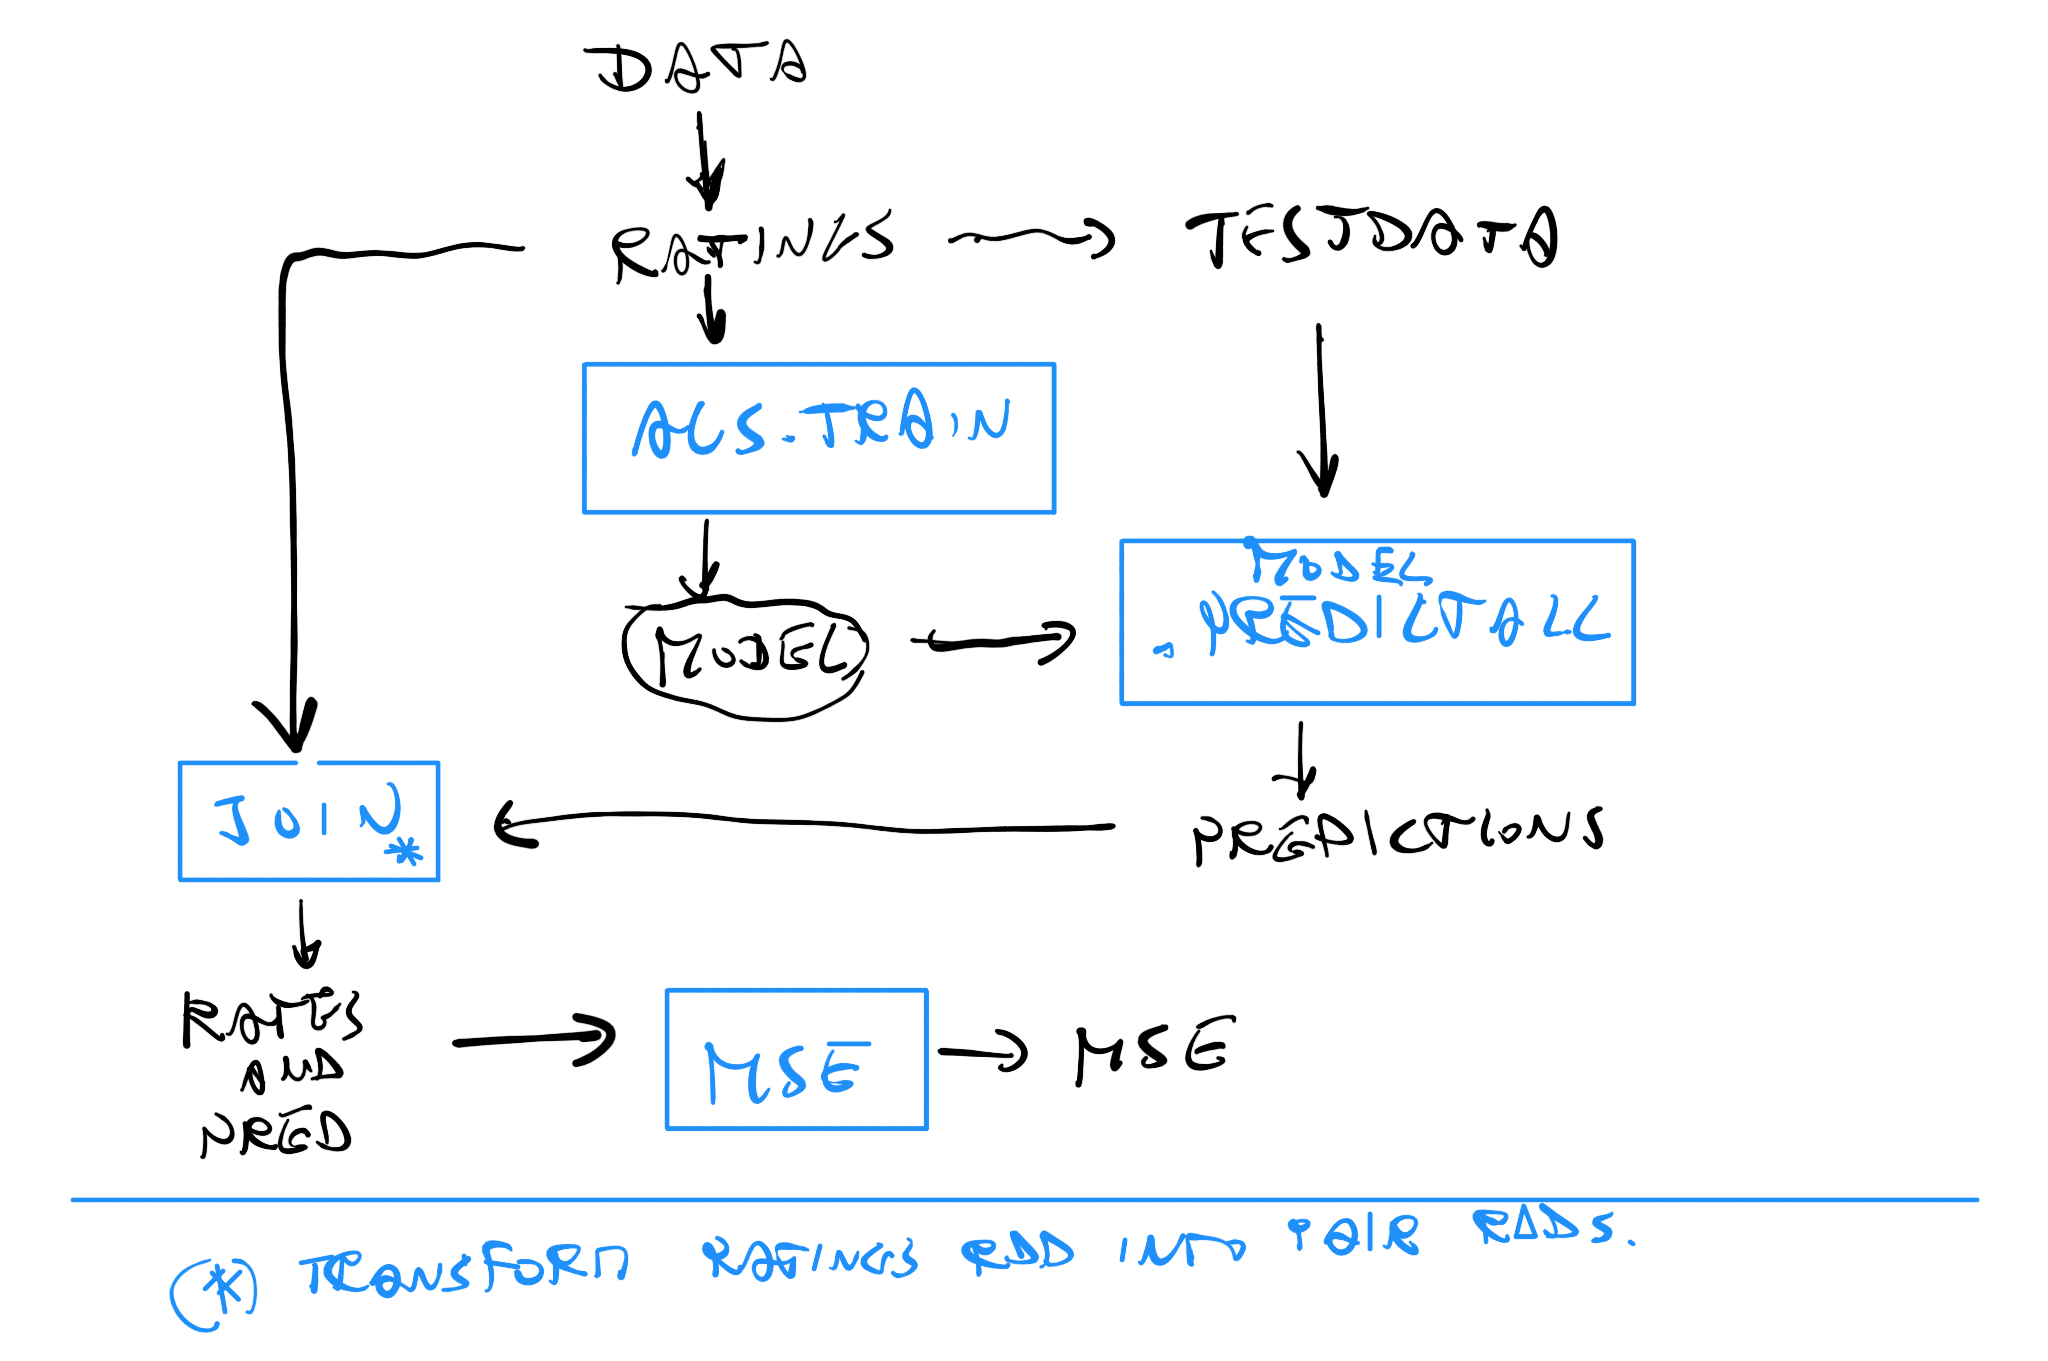 DATA
RATINGS
TESTDATA
ALS.TRAIN
MODEL
MODEL
.PREDICTALL
JOIN*
PREDICTIONS
RATES
AND
PRED
MSE
MSE
(*) TRANSFORM RATINGS RDD INTO PAIR RDDS.